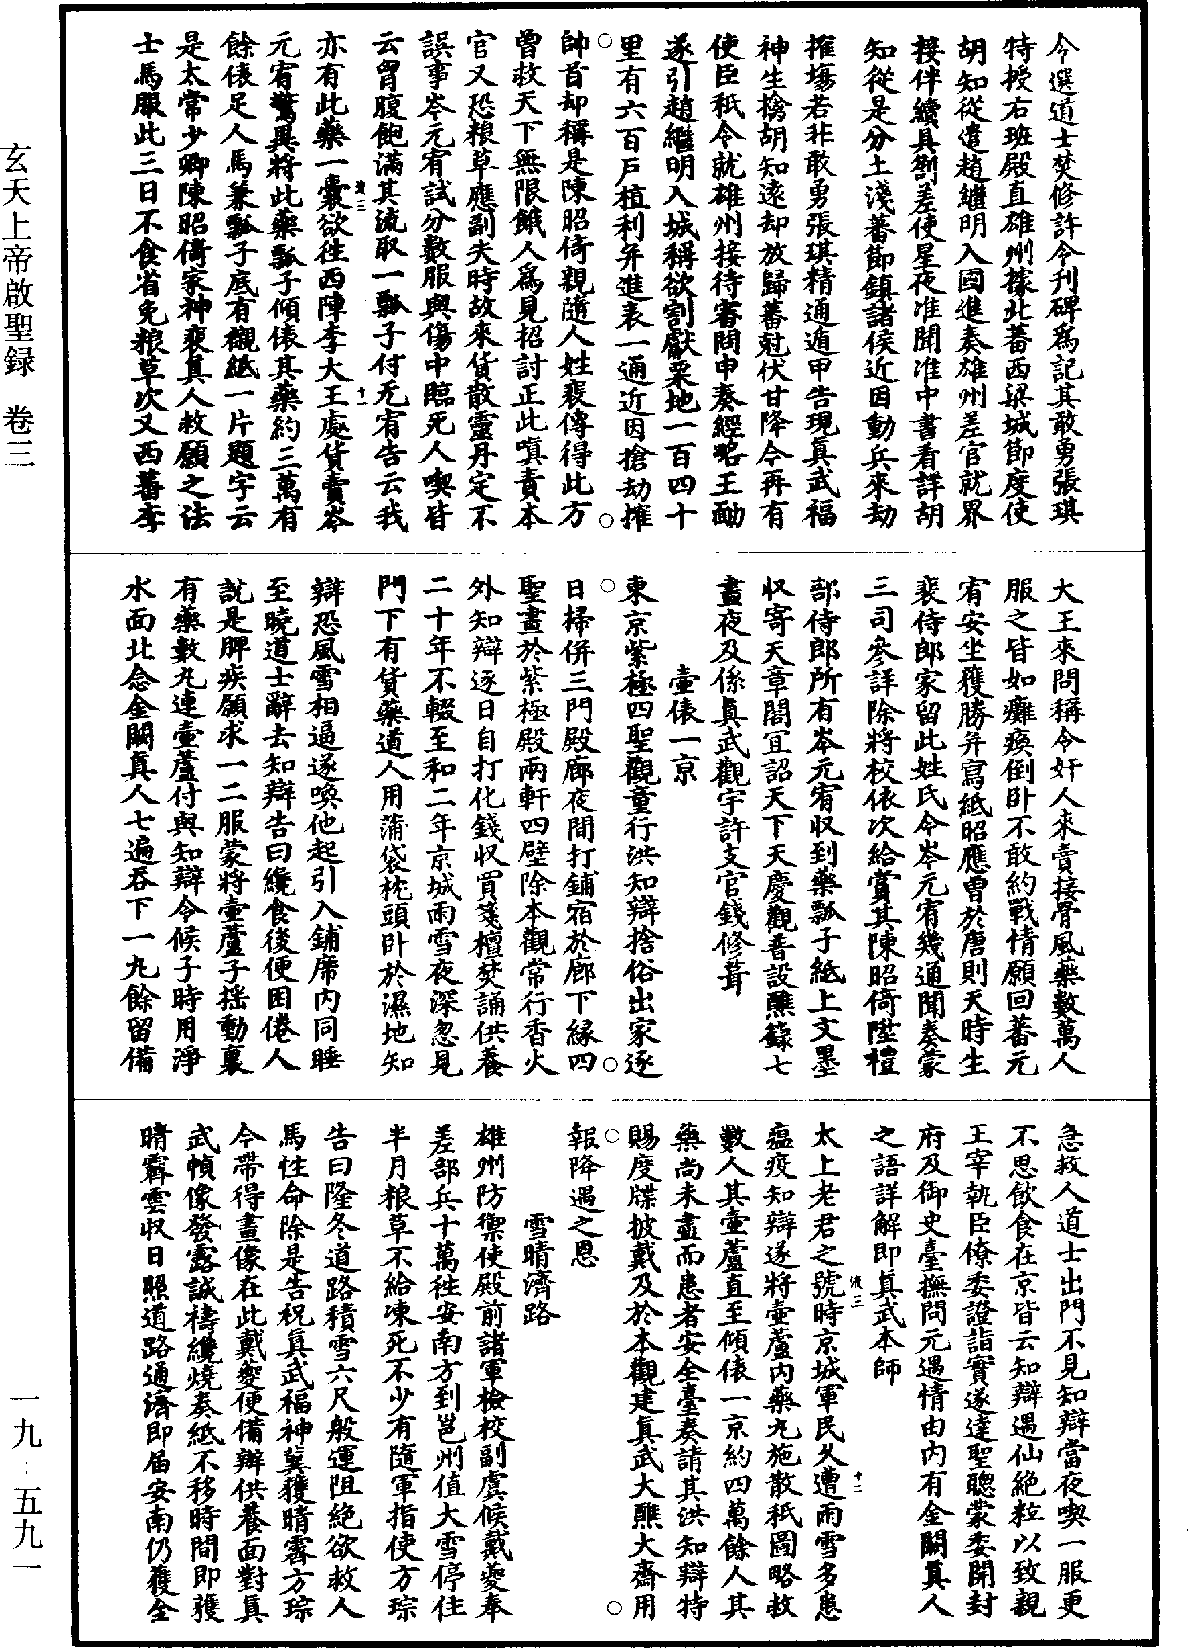 今選道士焚修許令刊碑爲記其敢勇張琪
特授右班殿直雄州據北蕃西梁城節度使
胡知從遣趙繼明入國進奏雄州差官就界
接伴續具劄差使星夜准聞准中書看詳胡
知從是分土淺蕃節鎮諸侯近因動兵來劫
搉場若非敢勇張琪精通遁甲告現真武福
神生擒胡知遠却放歸蕃尅伏甘降今再有
使臣秖令就雄州接待審問申奏經略王勔
遂引趙繼明入城稱欲割獻粟地一百四十
里有六百戶植利并進表一通近因搶劫搉
帥首却稱是陳昭倚親隨人姓裴傳得此方
曾救天下無限餓人爲見招討正此嗔責本
官又恐粮草應副失時故來貨散靈丹定不
誤事岑元宥試分數服與傷中臨死人喫皆
云胷腹飽滿其流取一瓢子付元宥告云我
亦有此藥一囊欲往西陣李大王處貨賣岑
元宥驚異將此藥瓢子傾俵其藥約三萬有
餘俵足人馬兼瓢子底有襯紙一片題字云
是太常少卿陳昭倚家神裴真人救願之法
士馬服此三日不食省免粮草次又西蕃李
大王來問稱令奸人來賣接骨風藥數萬人
服之皆如癱瘓倒卧不敢約戰情願回蕃元
宥安坐獲勝并寫紙昭應曹於唐則天時生
裴侍郎家留此姓氏今岑元宥幾通聞奏蒙
三司參詳除將校依次給賞其陳昭倚陞禮
部侍郎所有岑元宥収到藥瓢子紙上文墨
収寄天章閣冝詔天下天慶觀普設醮籙七
晝夜及係真武觀宇許支官錢修葺
壷俵一京
東京紫極四聖觀童行洪知辯捨俗出家逐
日掃併三門殿廊夜間打鋪宿於廊下緣四
聖畫於紫極殿兩軒四壁除本觀常行香火
外知辯逐日自打化錢収買箋檀焚誦供養
二十年不輟至和二年京城雨雪夜深忽見
門下有貨藥道人用蒲袋枕頭卧於濕地知
辯恐風雪相逼遂喚他起引入鋪席内同睡
至曉道士辭去知辯告曰纔食後便困倦人
說是脾疾願求一二服蒙將壷蘆子摇動裏
有藥數丸連壷蘆付與知辯令候子時用淨
水面北念金闕真人七遍吞下一丸餘留備
急救人道士出門不見知辯當夜喫一服更
不思飲食在京皆云知辯遇仙絶粒以致親
王宰執臣僚委證詣實遂達聖聰蒙委開封
府及御史臺撫問元遇情由内有金闕真人
之語詳解即真武本師
太上老君之號時京城軍民久遭雨雪多患
瘟疫知辯遂將壷蘆内藥丸施散秖圖略救
數人其壷蘆直至傾俵一京約四萬餘人其
藥尚未盡而患者安全臺奏請其洪知辯特
賜度牒披戴及於本觀建真武大醮大齋用
報降遇之恩
雪晴濟路
雄州防禦使殿前諸軍檢校副虞候戴夔奉
差部兵十萬徃安南方到邕州值大雪停住
半月粮草不給凍死不少有隨軍指使方琮
告曰隆冬道路積雪六尺般運阻絶欲救人
馬性命除是告祝真武福神冀獲晴霽方琮
今帶得畫像在此戴夔便備辦供養面對真
武幀像發露誠禱纔燒奏紙不移時間即獲
晴霽雲収日照道路通濟即届安南仍獲全
玄天上帝啟聖録　卷三
一九·五九一